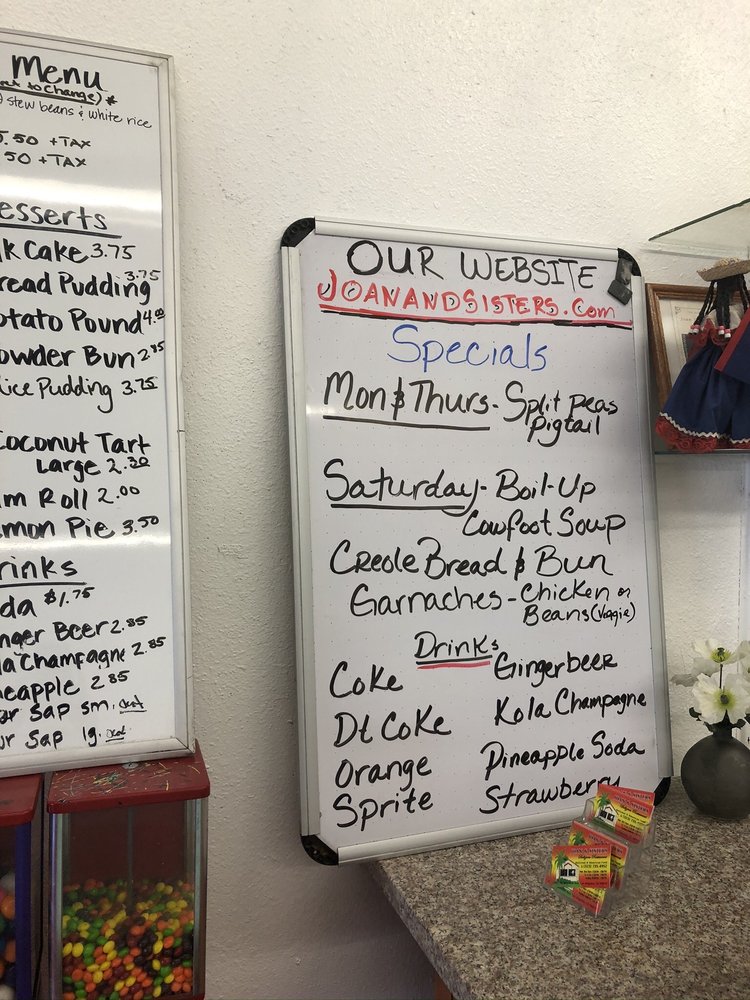 Menu
to Change) *
stew beans & white rice
5.50 + TAX
50 + TAX
esserts
lk Cake 3.75
read Pudding 3.75
otato Pound 4.00
owder Bun 2.85
ice Pudding 3.75
oconut Tart
Large 2.20
am Roll 2.00
emon Pie 3.50
rinks
da $1.75
nger Beer 2.85
la Champagne 2.85
neapple 2.85
ur Sap sm. out
ur Sap lg. out
OUR WEBSITE
JOANANDSISTERS.Com
Specials
Mon & Thurs - Split Peas
Pigtail
Saturday - Boil-Up
Cowfoot Soup
Creole Bread & Bun
Garnaches - Chicken or
Beans (Veggie)
Drinks
Coke
Gingerbeer
Dt Coke
Kola Champagne
Orange
Pineapple Soda
Sprite
Strawberry